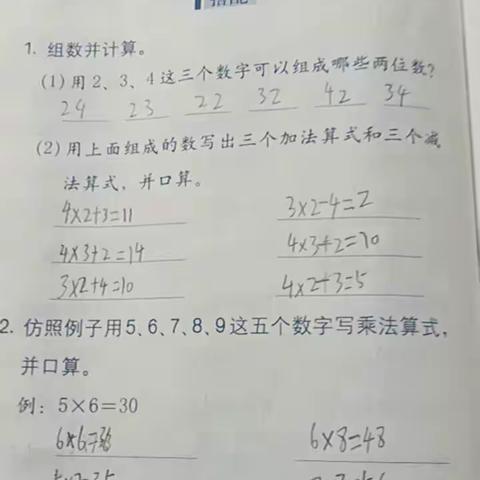 搭配
1. 组数并计算。
(1) 用 2、3、4 这三个数字可以组成哪些两位数?
24 23 22 32 42 34
(2) 用上面组成的数写出三个加法算式和三个减
法算式，并口算。
4×2+3=11 3×2-4=2
4×3+2=14 4×3+2=10
3×2+4=10 4×2+3=5
2. 仿照例子用5、6、7、8、9这五个数字写乘法算式，
并口算。
例: 5×6=30
6×6=36 6×8=48